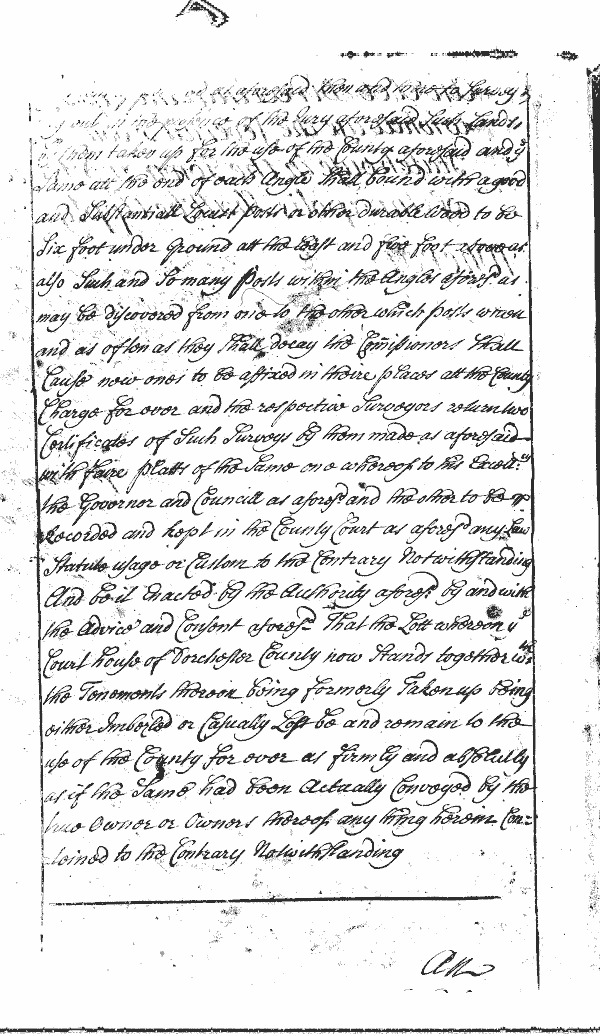 as aforesaid then and there to Survey &
out in the presence of the Jury aforesaid Such Lands
by them taken up for the use of the County aforesaid and ye
Same att the end of each Angle Shall bound with a good
and Substantiall Locust posts or other durable Wood to be
Six foot under Ground att the least and five foot above as
also Such and So many Posts within the Angles aforesd. as
may be discovered from one to the other which posts when
and as often as they Shall decay the Comissioners Shall
Cause new ones to be affixed in theire places att the County
Charge for ever and the respective Surveyors return two
Certificates of Such Surveys by them made as aforesaid
with faire platts of the Same one whereof to his Excellcy
the Governor and Councill as aforesd and the other to be
Recorded and kept in the County Court as aforesd any Law
Statute usage or Custom to the Contrary Notwithstanding
And be it Enacted by the Authority aforesd by and with
the Advice and Consent aforesd That the Lott whereon ye
Court house of Dorchester County now Stands together wth
the Tenements thereon being formerly Taken up being
either Imberled or Casually Lost be and remain to the
use of the County for ever as firmly and absolutely
as if the Same had been Actually Conveyed by the
true Owner or Owners thereof any thing herein Con=
teined to the Contrary Notwithstanding
An